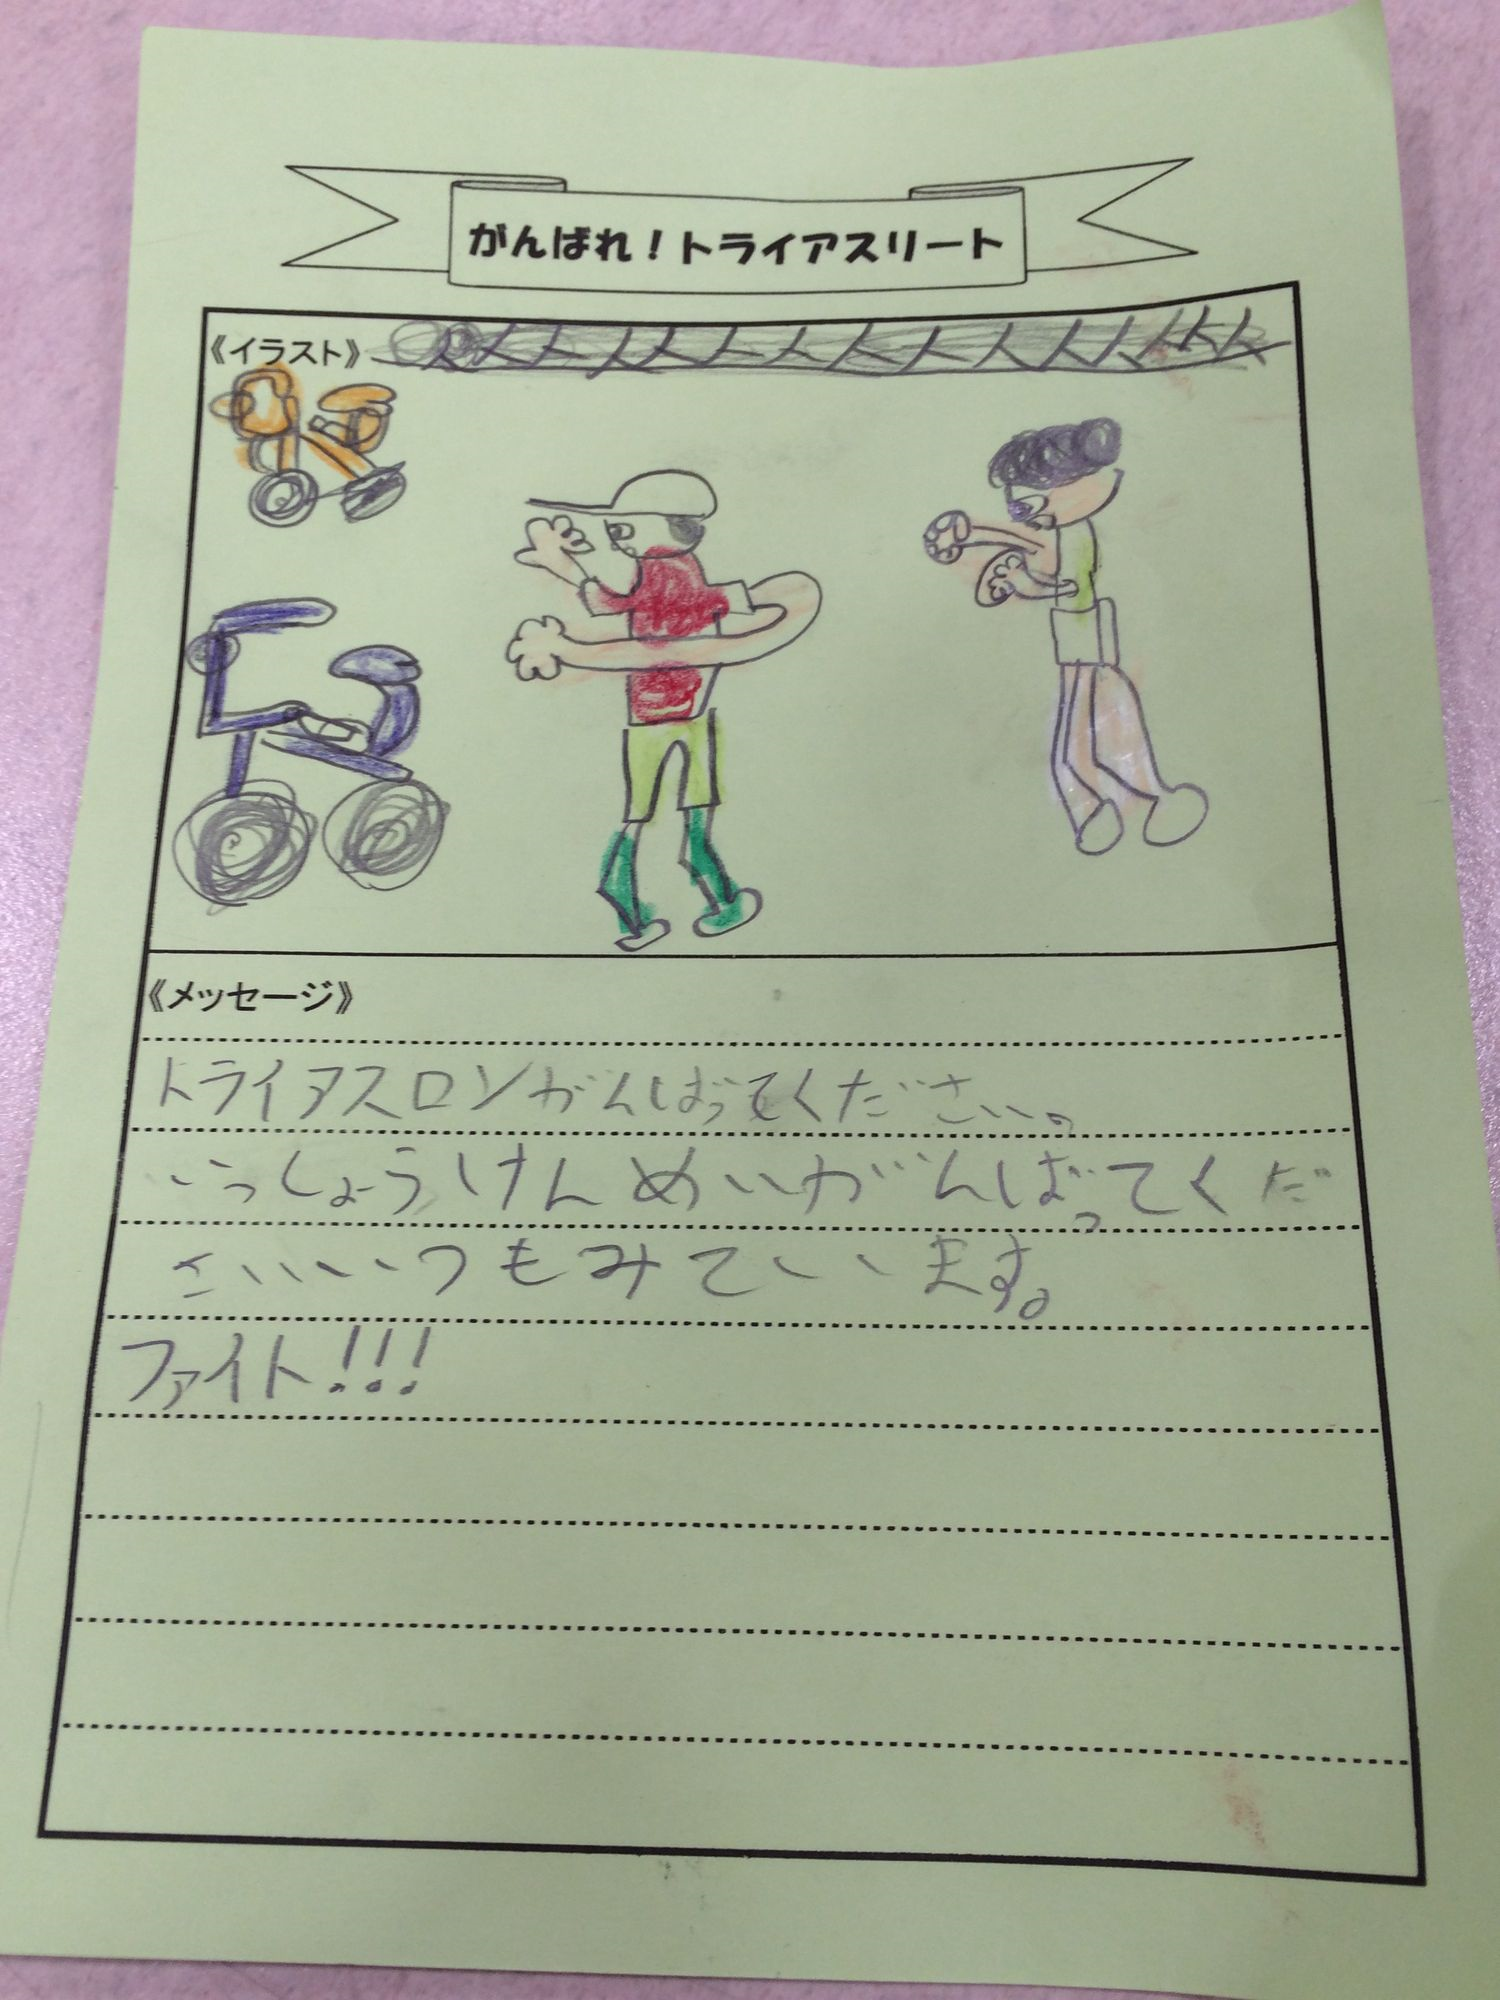 がんばれ！トライアスリート
《イラスト》
《メッセージ》
トライアスロンがんばってください。
いっしょうけんめいがんばってくだ
さいいつもみています。
ファイト!!!